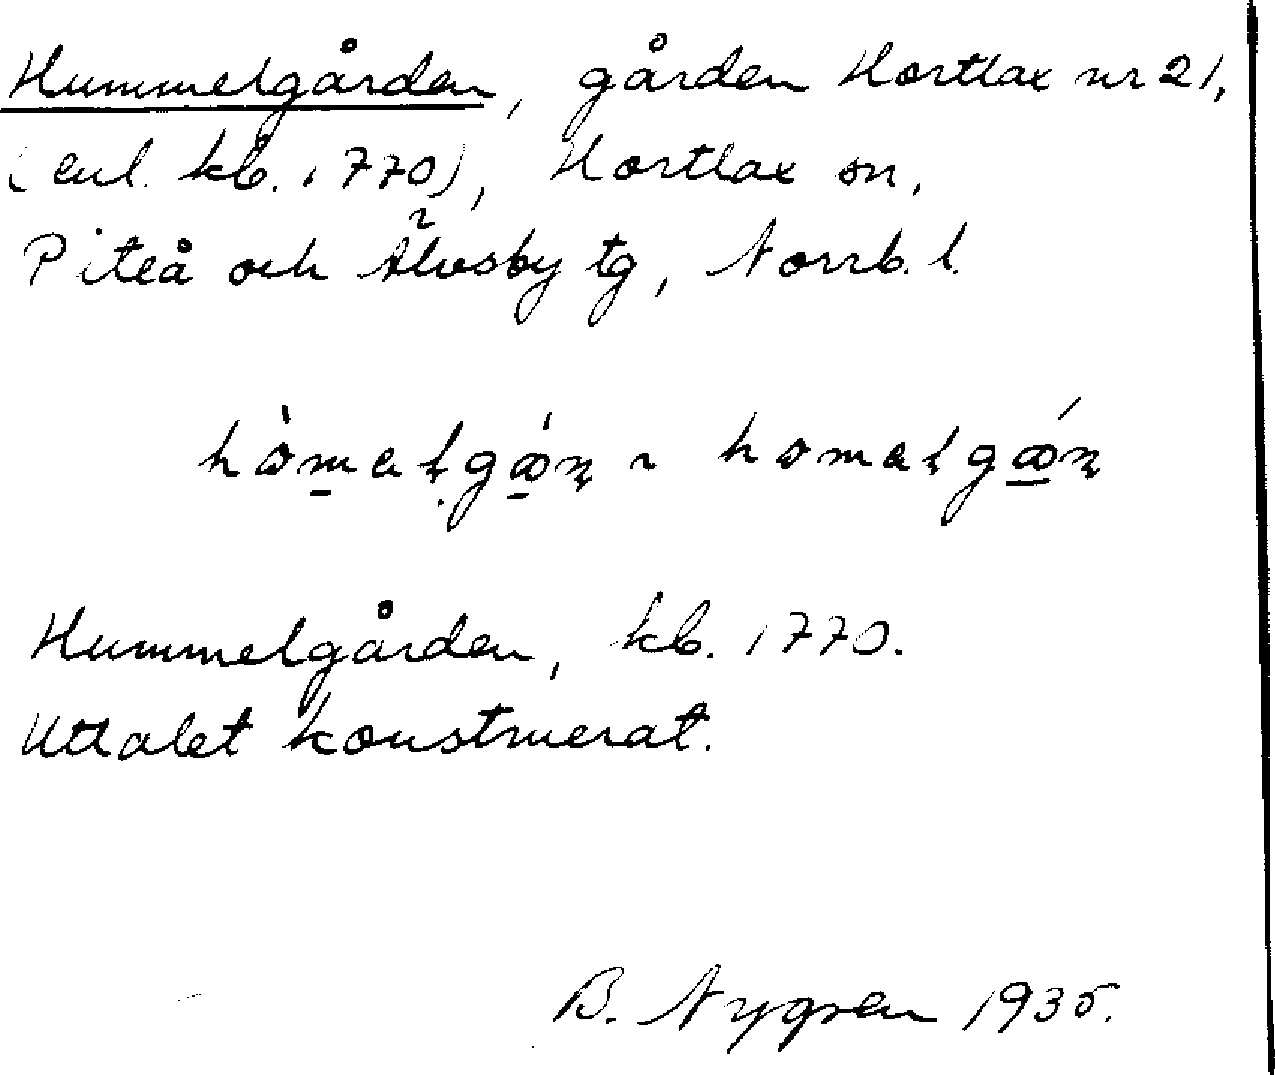 Hummelgården, gården Hortlax nr 21,
(enl. kb. 1770), Hortlax sn,
Piteå och Älvsby tg, Norrb. l.
Hummelgården, kb. 1770.
Uttalet konstruerat.
B. Nygren 1935.